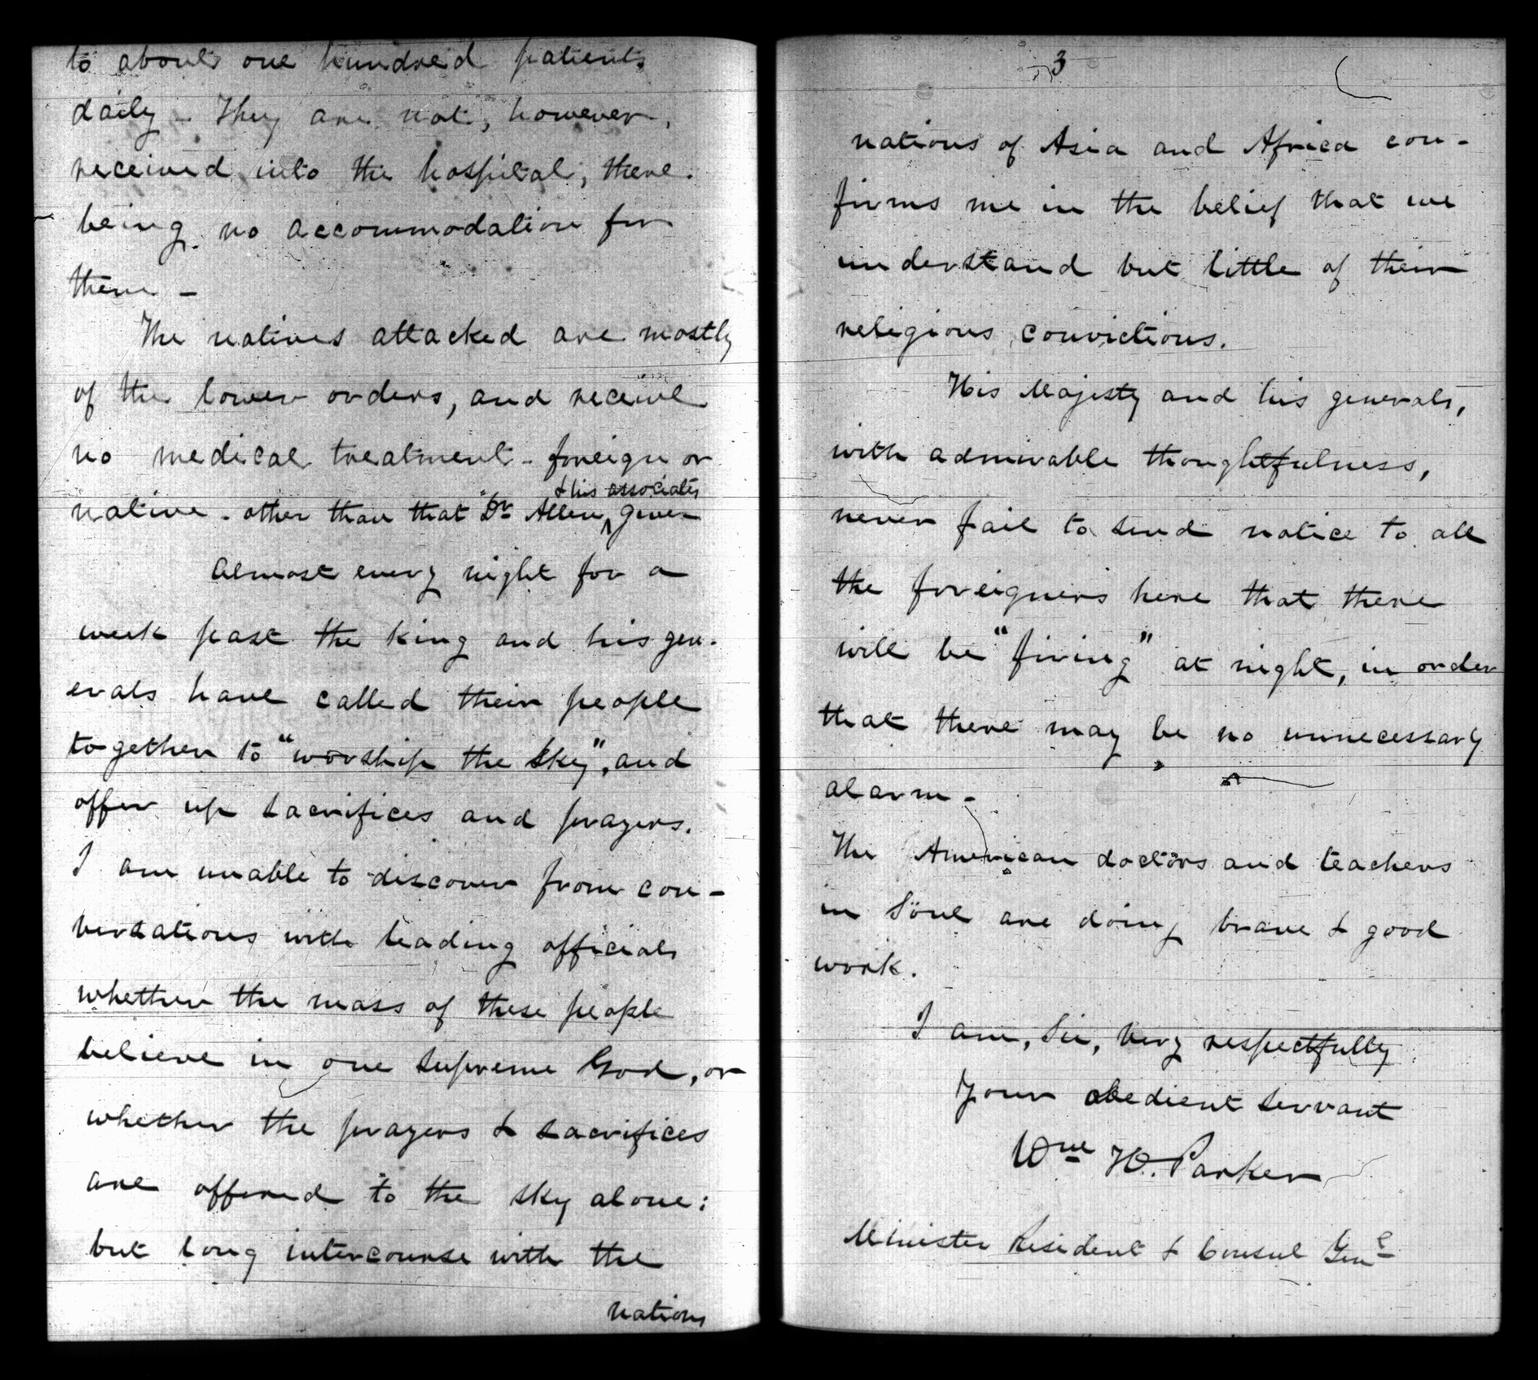 to about one hundred patients
daily - They are not, however,
received into the hospital, there
being no accommodation for
them -
The natives attacked are mostly
of the lower orders, and receive
no medical treatment - foreign or
& his associates
native - other than that Dr Allen ^ given
Almost every night for a
week past the King and his gen-
erals have called their people
together to "worship the sky", and
offer up sacrifices and prayers.
I am unable to discover from con-
versations with leading officials
whether the mass of these people
believe in one supreme God, or
whether the prayers & sacrifices
are offered to the sky alone:
but long intercourse with the
nations
3
nations of Asia and Africa con-
firms me in the belief that we
understand but little of their
religious convictions.
His Majesty and his generals,
with admirable thoughtfulness,
never fail to send notice to all
the foreigners here that there
will be "firing" at night, in order
that there may be no unnecessary
alarm -
The American doctors and teachers
in Söul are doing brave & good
work.
I am, Sir, very respectfully
Your obedient servant
Wm H. Parker
Minister Resident & Consul Genl